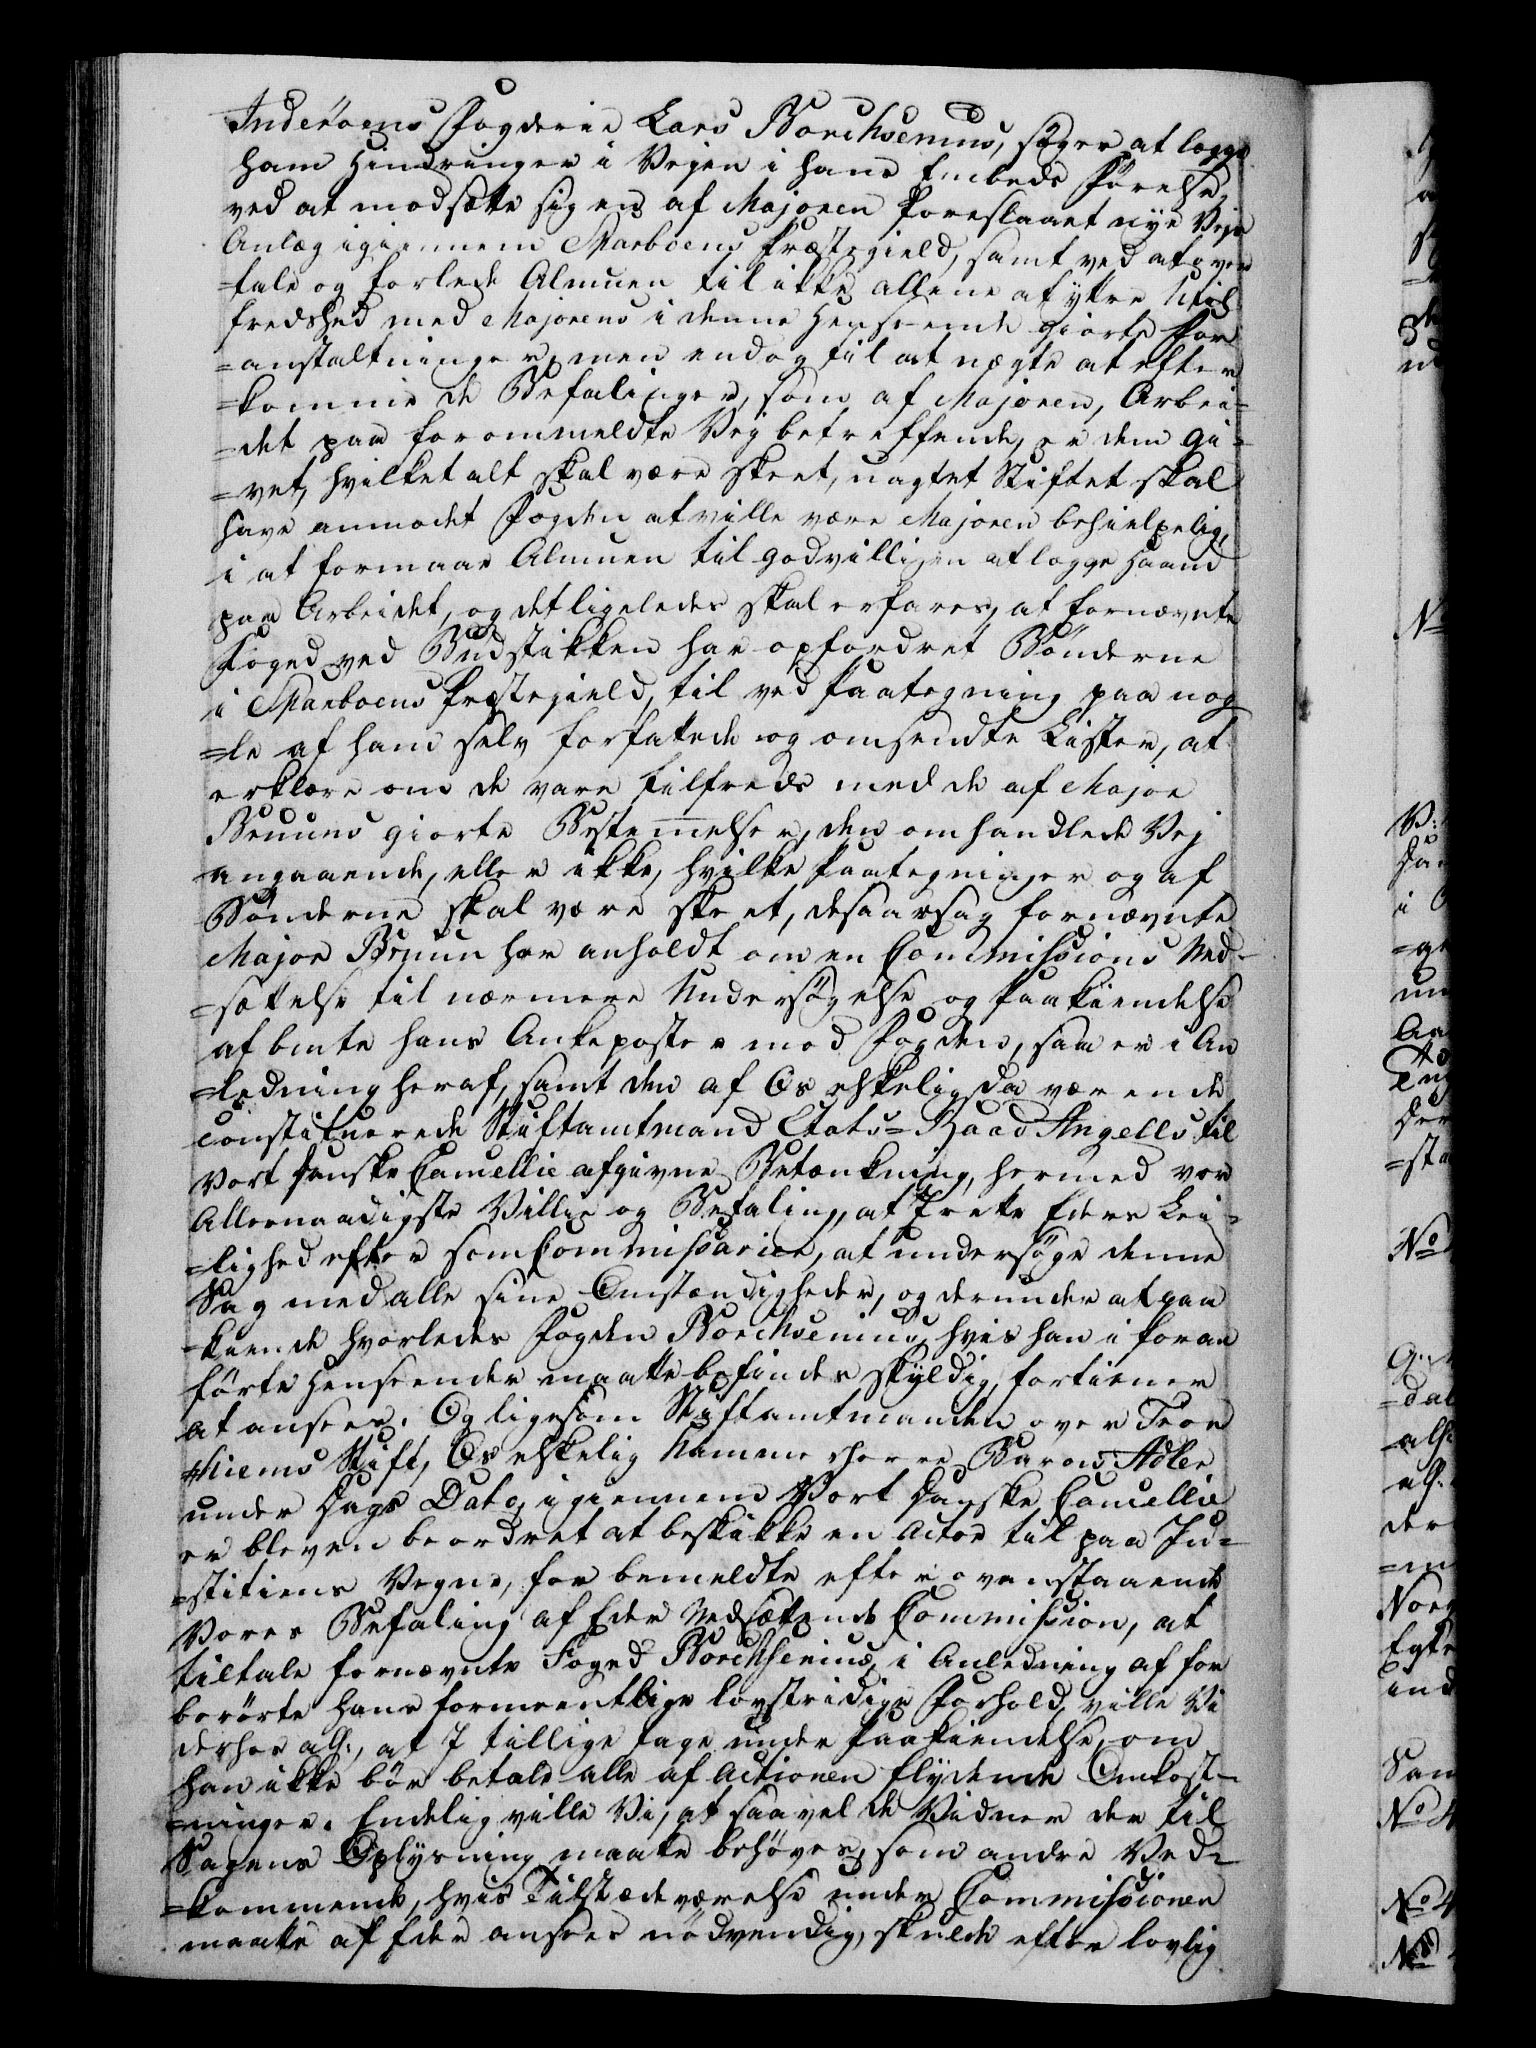 Inderöens Fogderie Lars Borchsenius, söger at lægge
ham Hindringer i Vejen i hans Embeds Förelse,
ved at modsætte sig en af Majoren foreslaaet nye Veje
Anlæg igiennem Sparboens Præstegield, samt ved at over
=tale og forlede Almuen til ikke allene at yttre Util
fredshed med Majorens i denne Henseende giorte For
=anstaltninger, men endog til at nægte at efter
=komme de Befalinger, som af Majoren, Arbei=
=det paa forommeldte Vej betreffende, er dem gi=
=vet, hvilket alt skal være skeet, uagtet Stiftet skal
have anmodet Fogden at ville være Majoren behielpelig,
i at formaae Almuen til godvilligen at lægge Haand
paa Arbeidet, og det ligeledes skal erfares, at fornævnte
Foged ved Budstikken har opfordret Bönderne
i Sparboens Præstegield, til ved Paategning paa nog
=le af ham selv forfattede og omsendte Lister, at
erklære om de vare tilfreds med de af Major
Bruuns giorte Bestemmelser, den omhandlede Vej
angaaende, eller ikke, hvilke Paategninger og af
Bönderne skal være skeet, desaarsag fornævnte
Major Bruun har anholdt om en Commissions Ned=
=sættelse til nærmere Undersögelse og Paakiendelse
af bmte hans Ankeposter mod Fogden, saa er i An
=ledning heraf, samt den af Os elskelig da værende
constituerede Stiftamtmand Etats=Raad Angells til
Vort danske Cancellie afgivne Betænkning, hermed vor
Allernaadigste Villie og Befaling, at I rette Eders Lei=
=lighed efter som Commissarier, at undersöge denne
Sag med alle sine Omstændigheder, og derunder at paa
=kiende hvorledes Fogden Borchsenius, hvis han i foran
förte Henseender maatte befindes skyldig, fortiener
at ansees. Og ligesom Stiftamtmanden over Tron
=hiems Stift, Os elskelig Hannne Herre Baron Adler
under Dags Dato, igiennem Vort danske Cancellie
er bleven beordret at beskikke en Actor til paa Ju=
=stitiens Vegne, for bemeldte efter ovenstaaende
Vores Befaling af Eder Nedsættende Commission, at
tiltale fornævnte Foged Borchsenius, i Anledning af for
berörte hans formeentlige lovstridige Forhold, ville Vi
derhos all:, at I tillige tage under Paakiendelse, om
han ikke bör betale alle af Actionen flydende Omkost=
=ninger. Endelig ville Vi, at saavel de Vidner der til
Sagens Oplysning maatte behöves, som andre Ved=
=kommende, hvis Tilstædeværelse under Commissionen
maatte af Eder ansees nödvendig, skulde efter lovlig